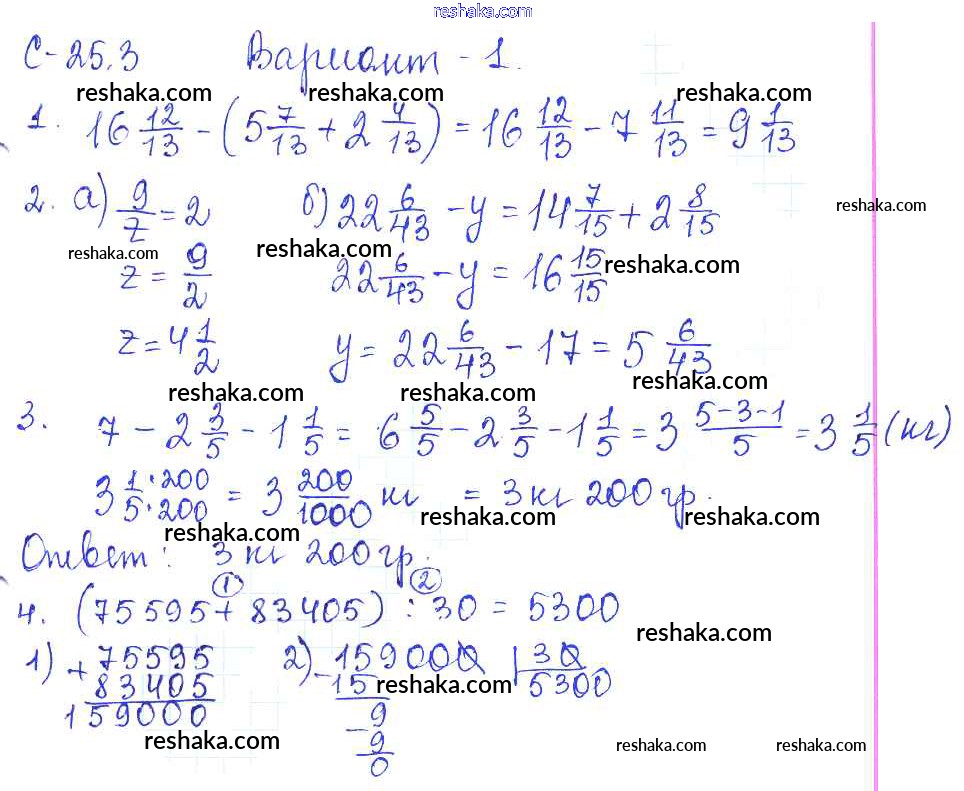 reshaka.com
С-25.3 Вариант - 1.
reshaka.com reshaka.com reshaka.com
1. 16 12/13 - (5 7/13 + 2 4/13) = 16 12/13 - 7 11/13 = 9 1/13
2. а) 9/z = 2 б) 22 6/43 - y = 14 7/15 + 2 8/15 reshaka.com
reshaka.com reshaka.com reshaka.com
z = 9/2 22 6/43 - y = 16 15/15
z = 4 1/2 y = 22 6/43 - 17 = 5 6/43
reshaka.com reshaka.com
3. 7 - 2 3/5 - 1 1/5 = 6 5/5 - 2 3/5 - 1 1/5 = 3 5-3-1/5 = 3 1/5 (кг)
3 1·200/5·200 = 3 200/1000 кг = 3 кг 200 гр.
reshaka.com reshaka.com reshaka.com
Ответ: 3 кг 200 гр.
1 2
4. (75595 + 83405) : 30 = 5300
reshaka.com
1) + 75595 2) - 159000 | 30
83405 15 reshaka.com 5300
159000 9
- 9
0
reshaka.com reshaka.com reshaka.com